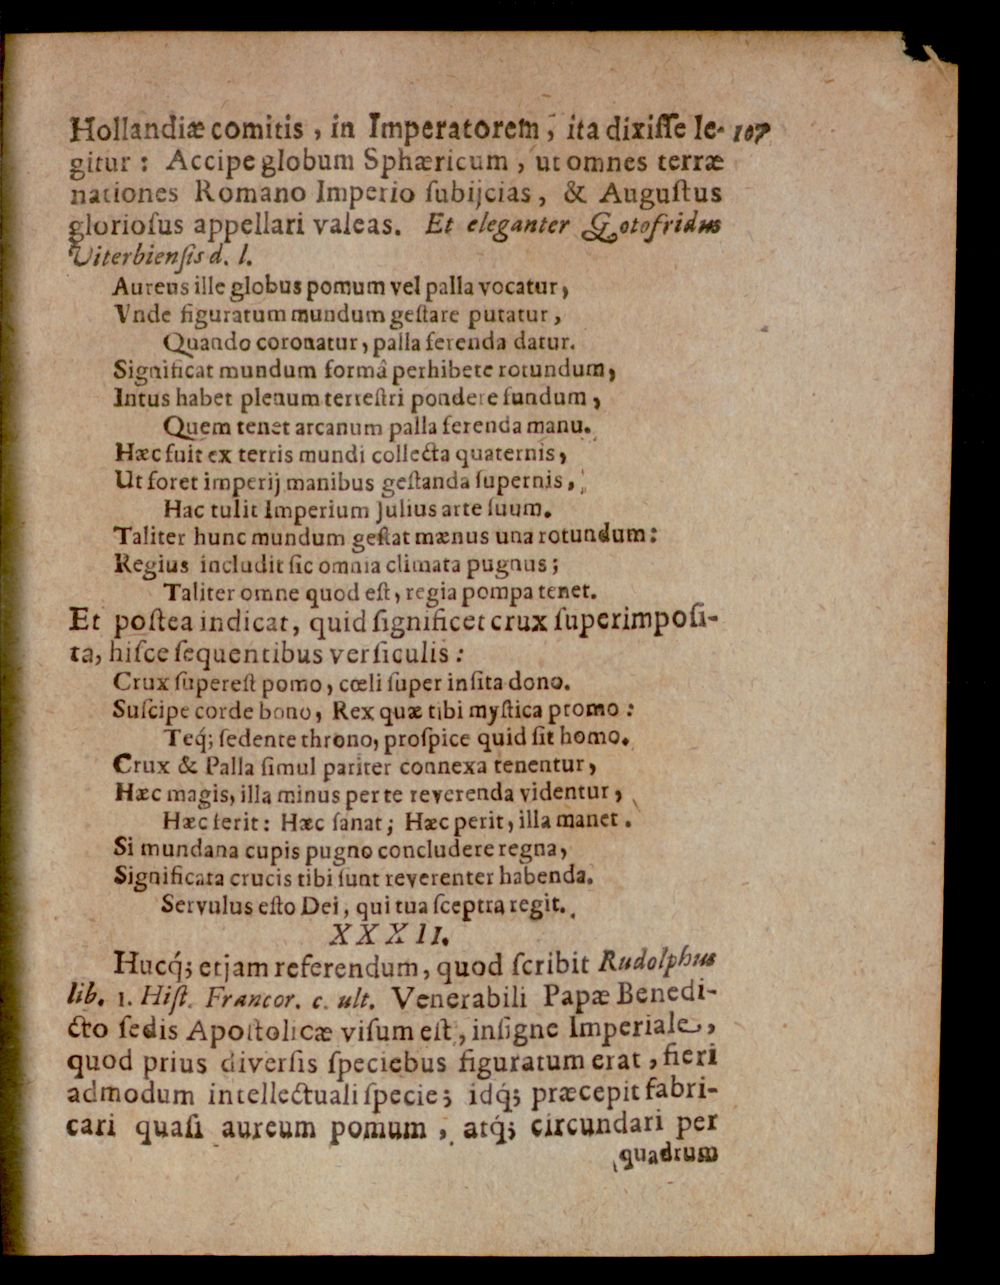 Hollandiæ comitis , in Imperatorem , ita dixiſſe le- 107
gitur : Accipe globum Sphæricum , ut omnes terræ
nationes Romano Imperio ſubijcias , & Auguſtus
glorioſus appellari valeas. Et eleganter Gotofridus
Viterbienſis d. l.
Aureus ille globus pomum vel palla vocatur ,
Vnde figuratum mundum geſtare putatur ,
Quando coronatur , palla ferenda datur.
Significat mundum formâ perhibete rotundum ,
Intus habet plenum terreſtri pondere fundum ,
Quem tenet arcanum palla ferenda manu.
Hæc fuit ex terris mundi collecta quaternis ,
Ut foret imperij manibus geſtanda ſupernis ,
Hac tulit Imperium Julius arte ſuum.
Taliter hunc mundum geſtat mænus una rotundum :
Regius includit ſic omnia climata pugnus ;
Taliter omne quod eſt , regia pompa tenet.
Et poſtea indicat , quid ſignificet crux ſuperimpoſi-
ta, hiſce ſequentibus verſiculis :
Crux ſupereſt pomo , cœli ſuper inſita dono.
Suſcipe corde bono, Rex quæ tibi myſtica promo :
Teq́; ſedente throno, proſpice quid ſit homo.
Crux & Palla ſimul pariter connexa tenentur ,
Hæc magis, illa minus per te reverenda videntur ,
Hæc ferit : Hæc ſanat ; Hæc perit , illa manet .
Si mundana cupis pugno concludere regna,
Significata crucis tibi ſunt reverenter habenda.
Servulus eſto Dei , qui tua ſceptra regit.
XXXII.
Hucq́; etjam referendum , quod ſcribit Rudolphus
lib. 1. Hiſt. Francor. c. ult. Venerabili Papæ Benedi-
cto ſedis Apoſtolicæ viſum eſt , inſigne Imperiale ,
quod prius diverſis ſpeciebus figuratum erat , fieri
admodum intellectuali ſpecie ; idq́; præcepit fabri-
cari quaſi aureum pomum , atq́; circundari per
quadrum